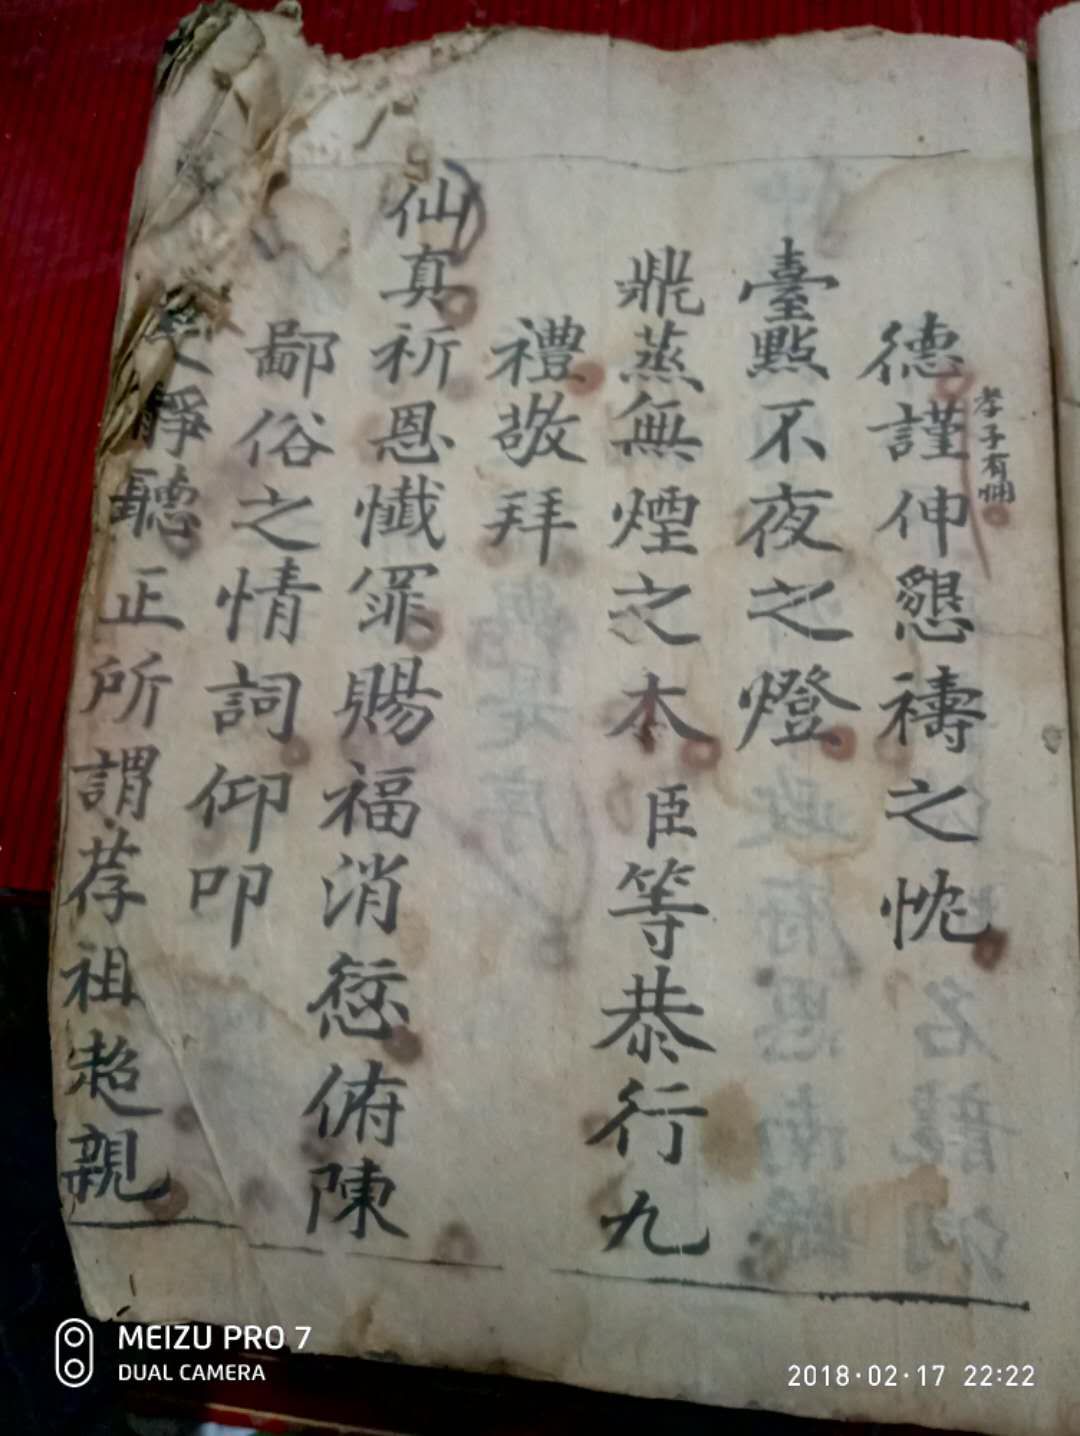 德謹伸懇禱之忱
孝子有
臺點不夜之燈
鼎蒸無煙之木臣等恭行九
禮敬拜
仙真祈恩懺罪賜福消愆俯陳
鄙俗之情詞仰叩
靜聽正所謂荐祖超親
MEIZU PRO 7
DUAL CAMERA
2018·02·17 22:22